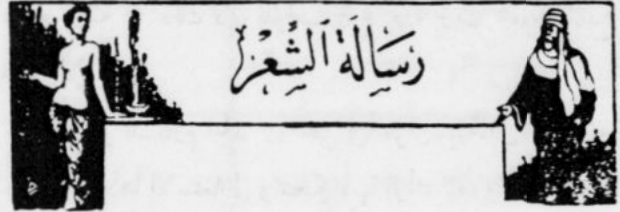 رسَالَة الشِّعْرْ